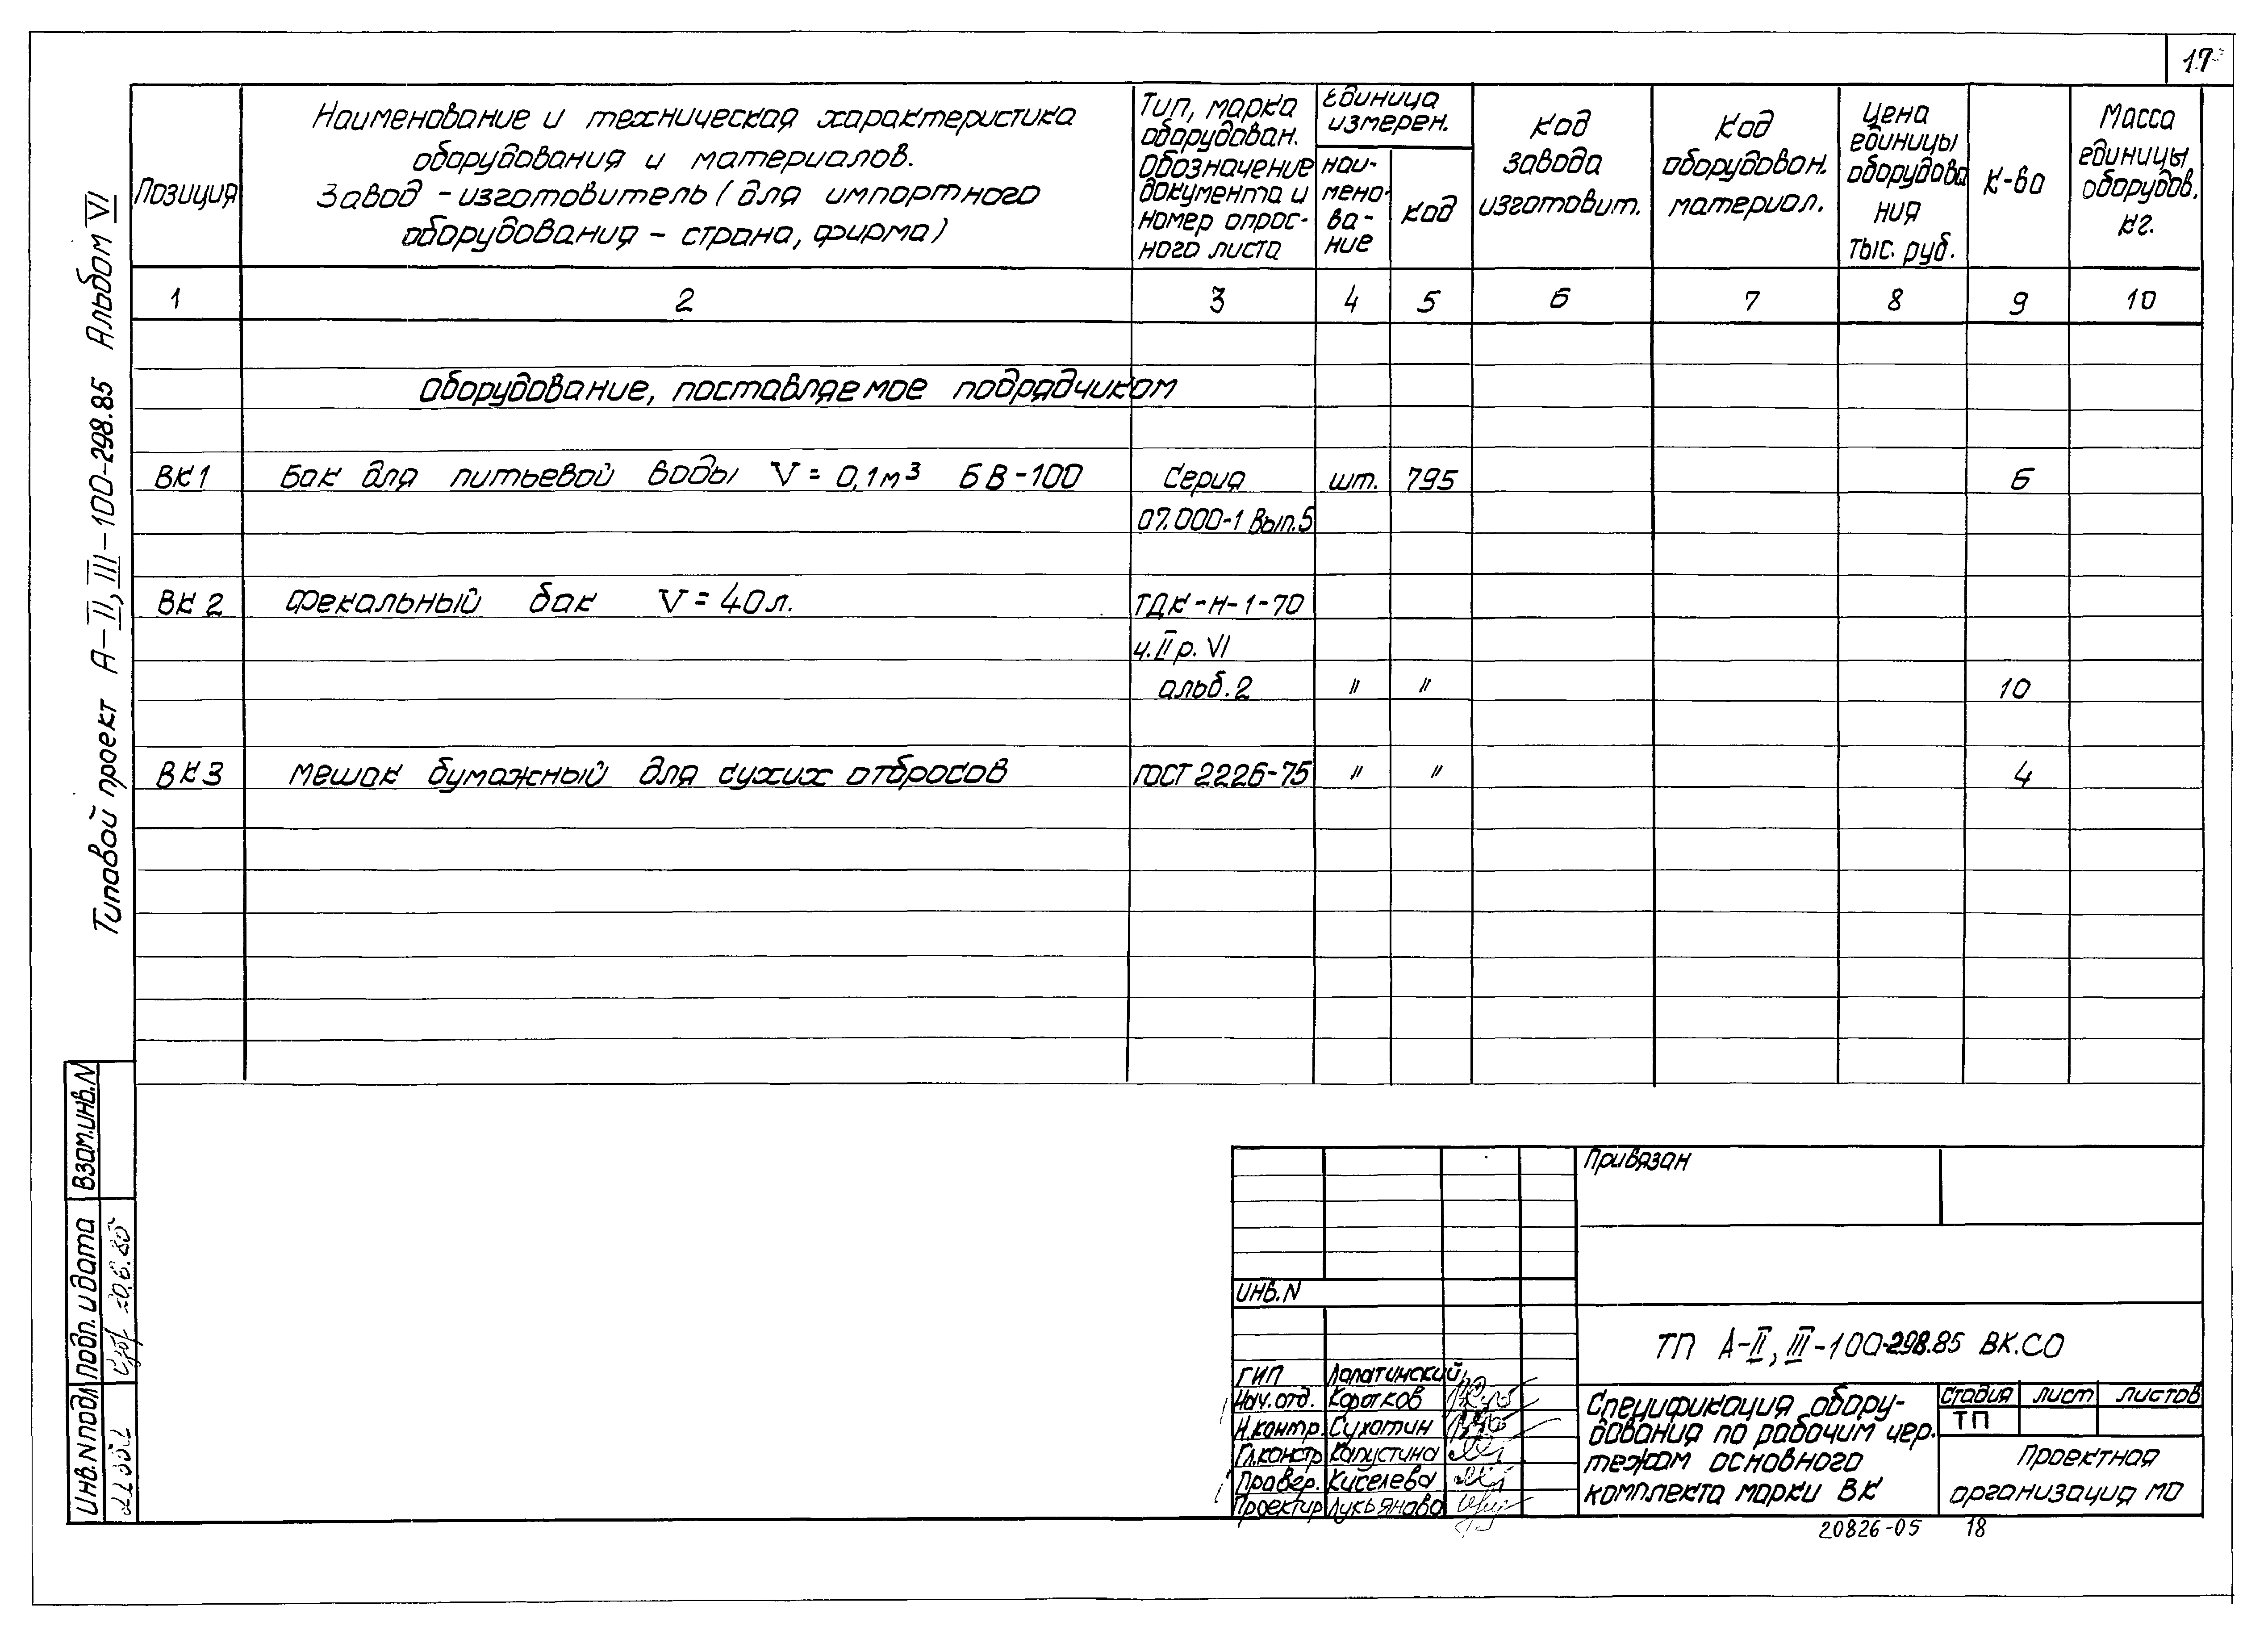 17
Типовой проект А-II, III-100-298.85 Альбом VI
Позиция
Наименование и техническая характеристика
оборудования и материалов.
Завод-изготовитель (для импортного
оборудования - страна, фирма)
Тип, марка
оборудован.
Обозначение
документа и
номер опрос-
ного листа
Единица
измерен.
наи-
мено-
ва-
ние
код
Код
завода
изготовит.
Код
оборудован.
материал.
Цена
единицы
оборудова
ния
тыс. руб.
К-во
Масса
единицы
оборудов.
кг.
1 2 3 4 5 6 7 8 9 10
Оборудование, поставляемое подрядчиком
ВК1 Бак для питьевой воды V=0,1м³ БВ-100 Серия шт. 795 6
07.000-1 Вып.5
ВК2 Фекальный бак V=40л. ТДК-Н-1-70
ч.II р. VI
альб.2 " " 10
ВК3 Мешок бумажный для сухих отбросов ГОСТ 2226-75 " " 4
Взам.инв.N
Подп. и дата
20.6.85
Инв.N подл
Привязан
Инв.N
ТП А-II, III-100-298.85 ВК.СО
ГИП Лопатинский
Нач.отд. Коротков
Н.контр. Сухотин
Гл.констр Капустина
Провер. Киселева
Проектир Лукьянова
Спецификация обору-
дования по рабочим чер.
тежам основного
комплекта марки ВК
Стадия лист листов
ТП
Проектная
организация МО
20826-05 18